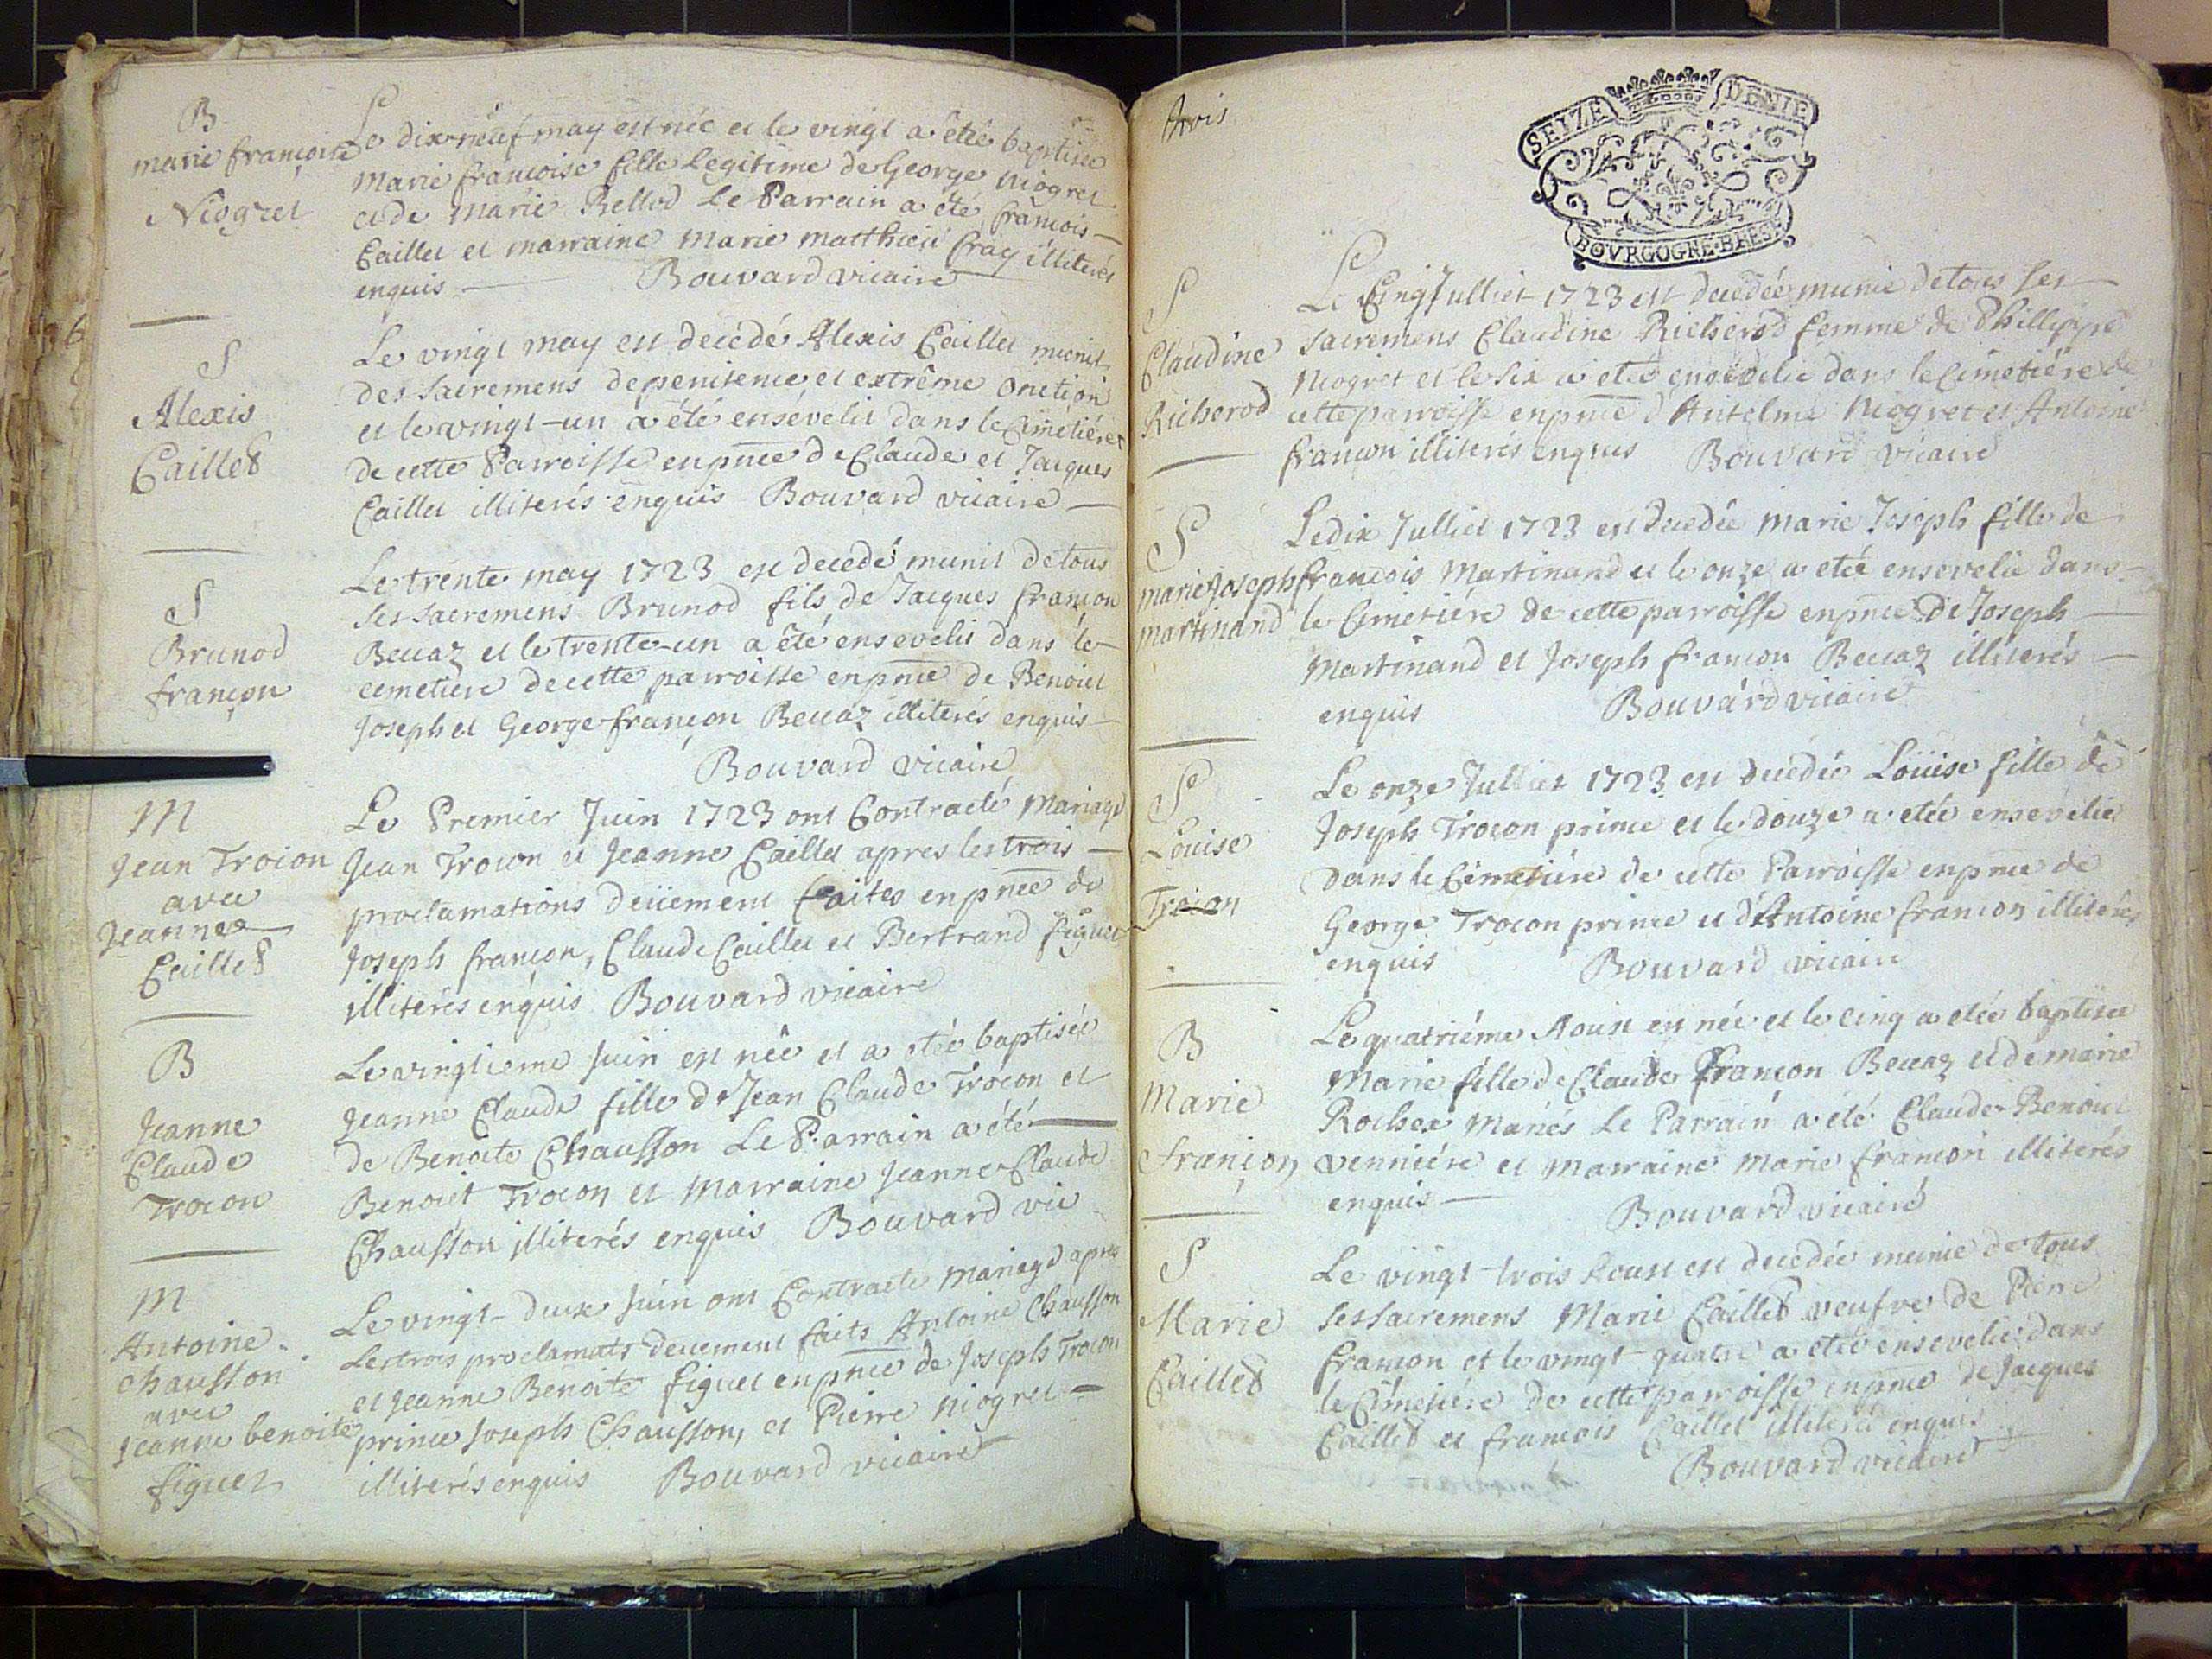 B
marie françoise
Niogret
Le dix-neuf may est née et le vingt a étée baptisée
Marie francoise fille Legitime de George Niogret
et de Marie Bellod Le Parrain a été francois
Caillet et marraine Marie Matthieu Cray illiterés
enquis Bouvard vicaire
S
Alexis
Caillet
Le vingt may est decedé Alexis Caillet munit
des sacremens de penitence et extrême onction
et le vingt-un a été ensévelit dans le Cimétiére
de cette Parroisse en pnce de Claude et Jacques
Caillet illiterés enquis Bouvard vicaire
S
Brunod
françon
Le trente may 1723 est decedé munit de tous
ses sacremens Brunod fils de Jacques françon
Beccaz et le trente-un a été ensevelit dans le
cemetiere de cette parroisse en pnce de Benoict
Joseph et George françon Beccaz illiterés enquis
Bouvard vicaire
M
Jean Trocon
avec
Jeanne
Caillet
Le Premier Juin 1723 ont Contracté Mariage
Jean Trocon et Jeanne Caillet apres les trois
proclamations deüement faites en pnce de
Joseph françon, Claude Caillet et Bertrand figuet
illiterés enquis Bouvard vicaire
B
Jeanne
Claude
Trocon
Le vingtieme Juin est née et a étée baptisée
Jeanne Claude fille de Jean Claude Trocon et
de Benoite Chausson Le Parrain a été
Benoict Trocon et Marraine Jeanne Claude
Chausson illiterés enquis Bouvard vic
M
Antoine
Chausson
avec
Jeanne benoite
figuet
Le vingt-deux Juin ont Contracté Mariage apres
Les trois proclamats deuement faits Antoine Chausson
et Jeanne Benoite figuet en pnce de Joseph Trocon
prince Joseph Chausson, et Pierre Niogret
illiterés enquis Bouvard vicaire
trois
SEIZE DENIE
BOVRGOGNE·BRESS
S
Claudine
Richerod
Le Cinq Julliet 1723 est decedée munie de tous ses
sacremens Claudine Richerod femme de Phillippe
Niogret et le six a étée ensevelie dans le Cimetiére de
cette parroisse en pnce d'Antelme Niogret et Antoine
françon illiterés enquis Bouvard vicaire
S
marie Joseph
martinand
Le dix Julliet 1723 est decedée Marie Joseph fille de
francois Martinand et le onze a etée ensevelie dans
le Cimetiére de cette parroisse en pnce de Joseph
Martinand et Joseph françon Beccaz illiterés
enquis Bouvard vicaire
S
Louise
Trocon
Le onze Julliet 1723 est decedée Loüise fille de
Joseph Trocon prince et le douze a etée ensevelie
dans le Cémetiére de cette Parroisse en pnce de
George Trocon prince et d'Antoine françon illiterés
enquis Bouvard vicaire
B
Marie
françon
Le quatriéme Aoust est née et le cinq a etée baptisée
Marie fille de Claude françon Beccaz et de marie
Rochex Mariés Le Parrain a été Claude Benoict
venniére et Marraine Marie françon illiterés
enquis Bouvard vicaire
S
Marie
Caillet
Le vingt-trois Aoust est decedée munie de tous
ses sacremens Marie Caillet veufve de Pierre
françon et le vingt-quatre a étée ensevelie dans
le Cimetiére de cette parroisse en pnce de Jacques
Caillet et francois Caillet illiterés enquis
Bouvard vicaire